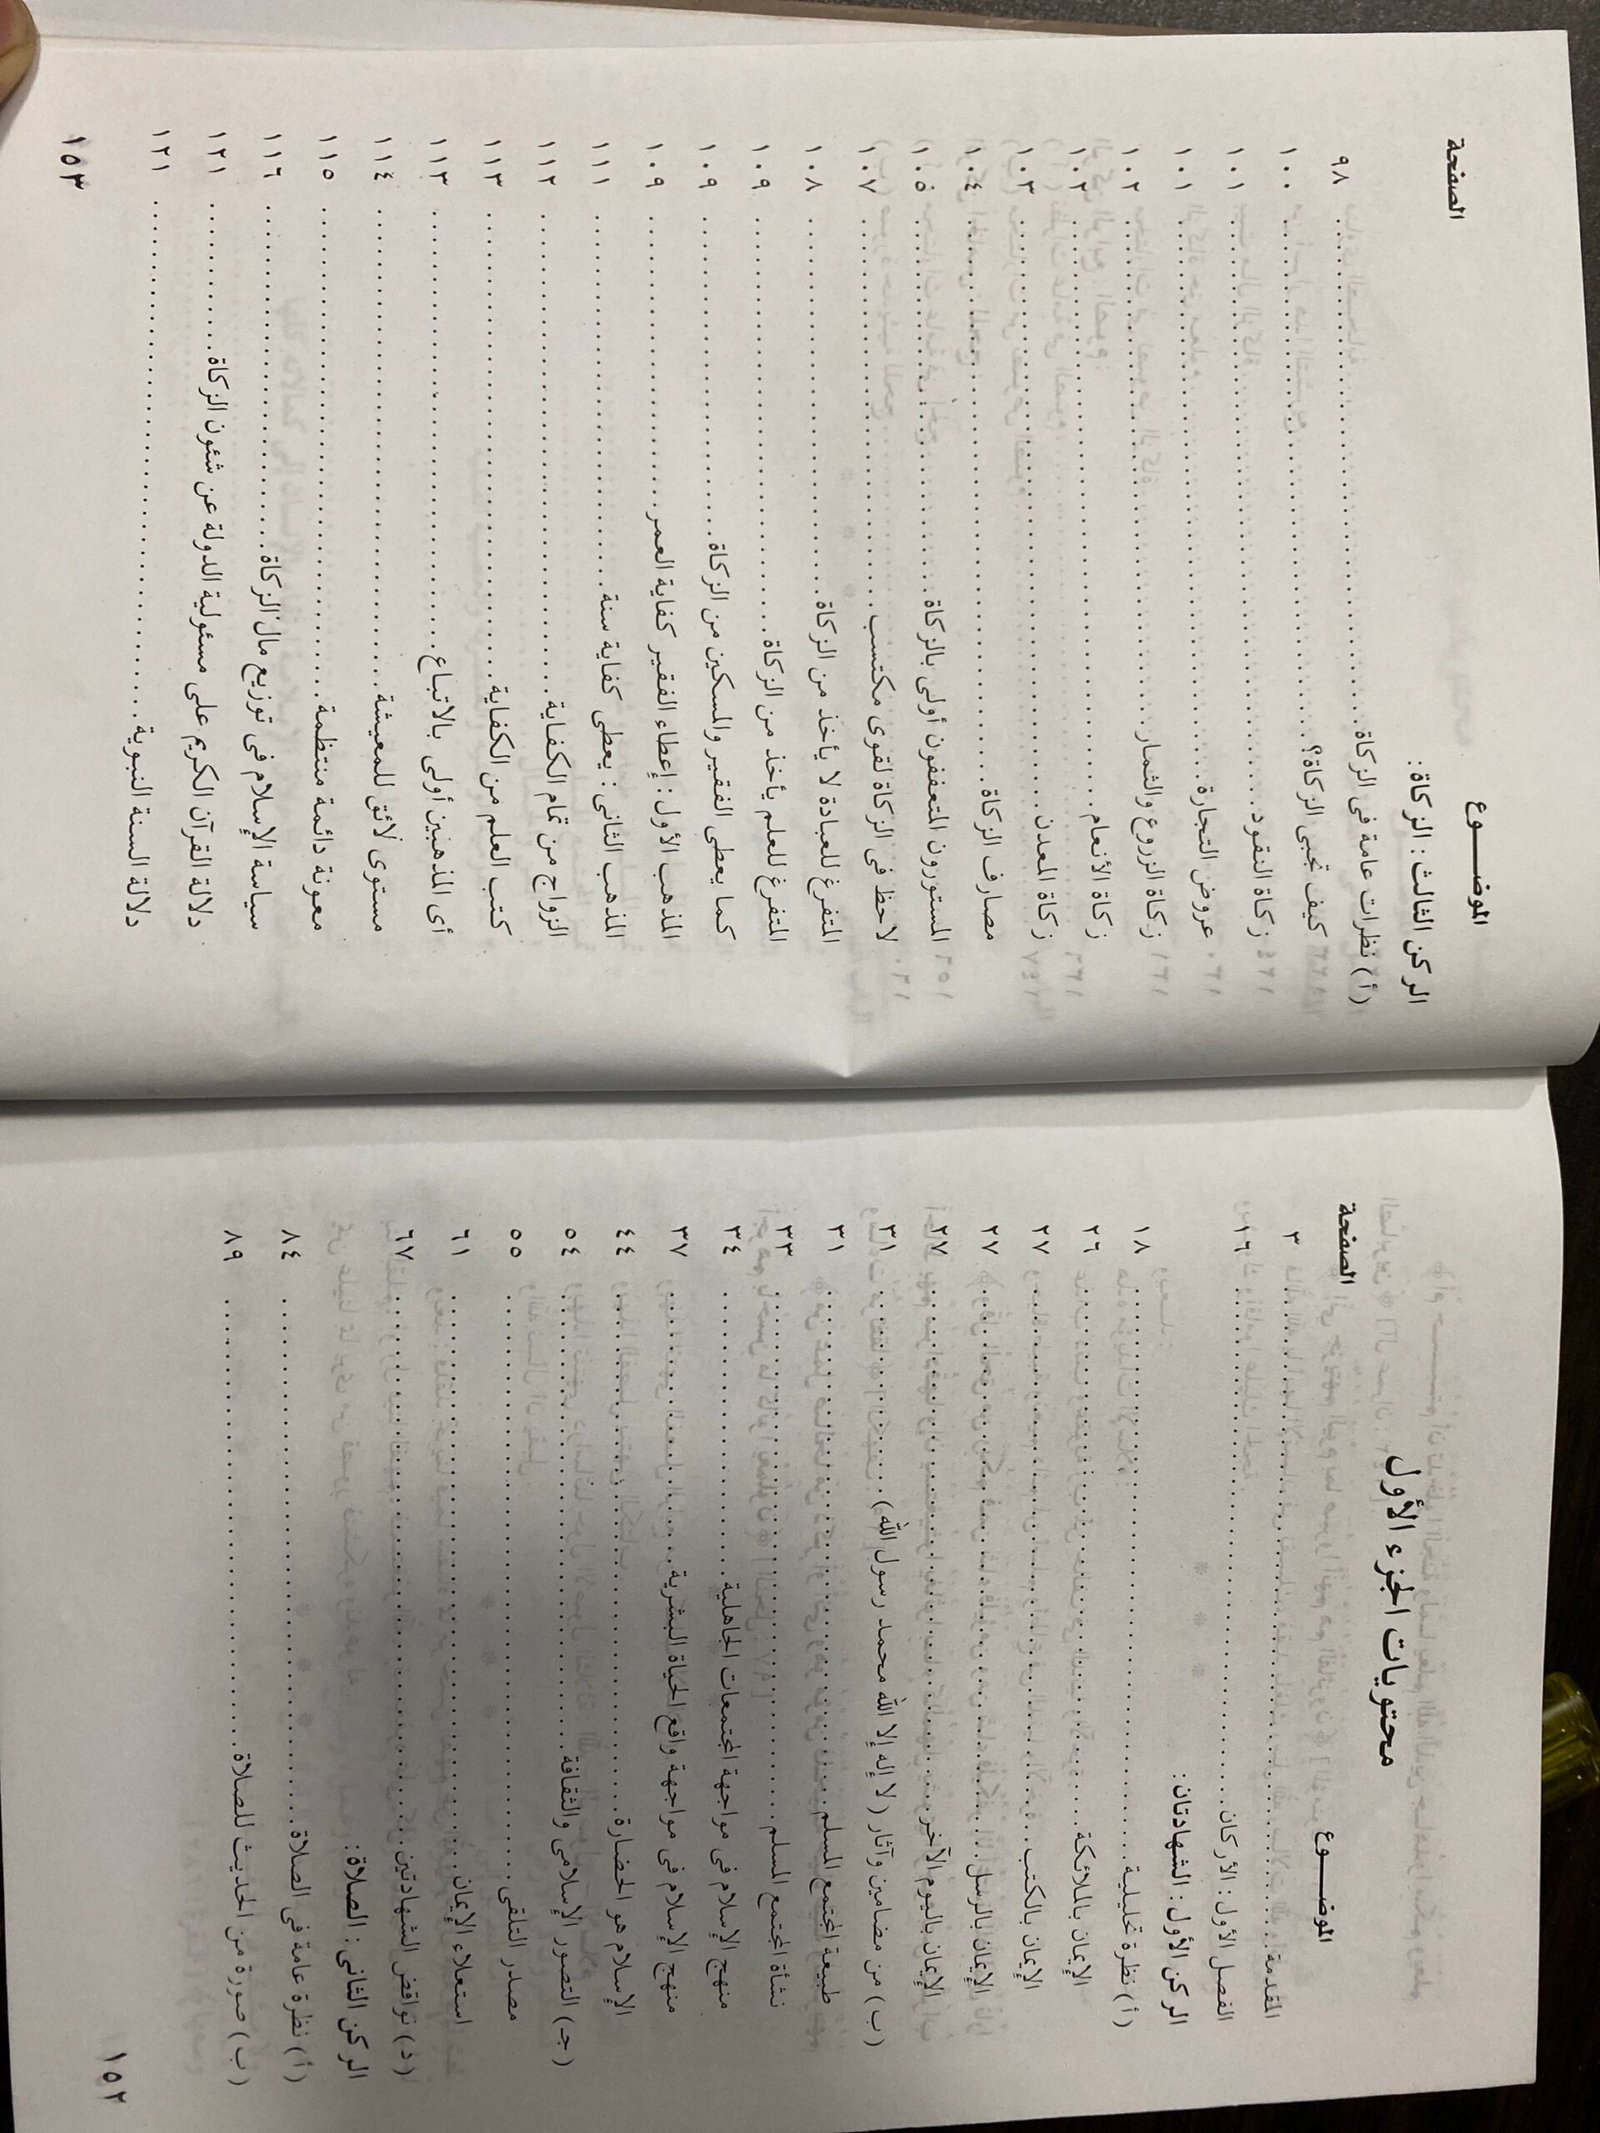 محتويات الجزء الأول
الموضـــوع الصفحة
المقدمة ٣
الفصل الأول : الأركان ١٦
الركن الأول : الشهادتان :
( أ ) نظرة تحليلية ١٨
الإيمان بالملائكة ٢٦
الإيمان بالكتب ٢٧
الإيمان بالرسل ٢٧
الإيمان باليوم الآخر ٢٧
( ب ) من مضامين وآثار ( لا إله إلا الله محمد رسول الله ) ٣١
طبيعة المجتمع المسلم ٣١
نشأة المجتمع المسلم ٣٣
منهج الإسلام فى مواجهة المجتمعات الجاهلية ٣٤
منهج الإسلام فى مواجهة واقع الحياة البشرية ٣٧
الإسلام هو الحضارة ٤٤
( جـ ) التصور الإسلامى والثقافة ٥٤
مصدر التلقى ٥٥
استعلاء الإيمان ٦١
( د ) نواقض الشهادتين ٦٧
الركن الثانى : الصلاة :
( أ ) نظرة عامة فى الصلاة ٨٤
( ب ) صورة من الحديث للصلاة ٨٩
١٥٢
الموضـــوع الصفحة
الركن الثالث : الزكاة :
( أ ) نظرات عامة فى الزكاة ٩٨
كيف تجبى الزكاة؟ ١٠٠
زكاة النقود ١٠١
عروض التجارة ١٠١
زكاة الزروع والثمار ١٠٢
زكاة الأنعام ١٠٢
زكاة المعدن ١٠٣
مصارف الزكاة ١٠٤
المستورون المتعففون أولى بالزكاة ١٠٥
لاحظ فى الزكاة لقوى مكتسب ١٠٧
المتفرغ للعبادة لا يأخذ من الزكاة ١٠٨
المتفرغ للعلم يأخذ من الزكاة ١٠٩
كما يعطى الفقير والمسكين من الزكاة ١٠٩
المذهب الأول : إعطاء الفقير كفاية العمر ١٠٩
المذهب الثانى : يعطى كفاية سنة ١١١
الزواج من تمام الكفاية ١١٢
كتب العلم من الكفاية ١١٣
أى المذهبين أولى بالاتباع ١١٣
مستوى لائق للمعيشة ١١٤
معونة دائمة منتظمة ١١٥
سياسة الإسلام فى توزيع مال الزكاة ١١٦
دلالة القرآن الكريم على مسئولية الدولة عن شئون الزكاة ١٢١
دلالة السنة النبوية ١٢١
١٥٣